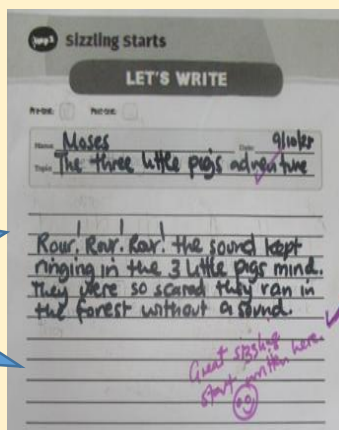 Step 2 Sizzling Starts
LET'S WRITE
Name Moses Date 9/10/25
Topic The three little pigs adventure
Rour! Rar! Rar! the sound kept
ringing in the 3 little pigs mind.
They were so scared they ran in
the forest without a sound.
Great sizzling
start written here.